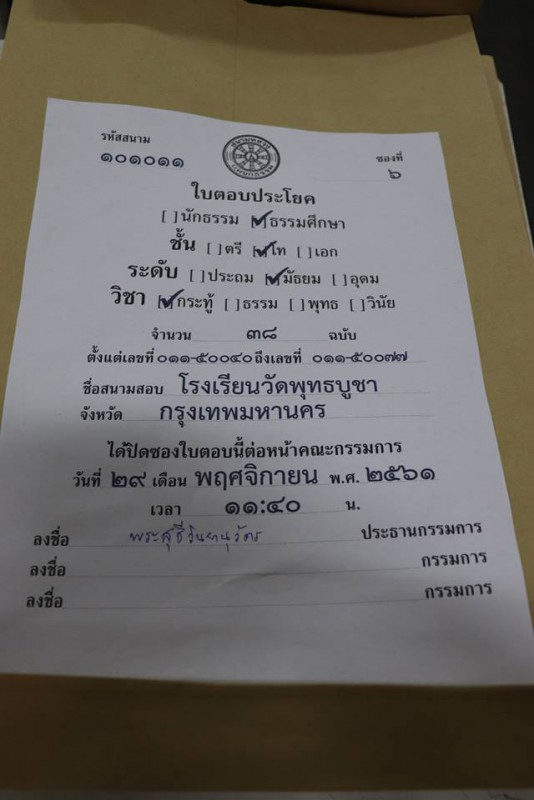 รหัสสนาม
๑๐๑๐๑๑
ซองที่
๖
ใบตอบประโยค
[ ] นักธรรม [✓] ธรรมศึกษา
ชั้น [ ] ตรี [✓] โท [ ] เอก
ระดับ [ ] ประถม [✓] มัธยม [ ] อุดม
วิชา [✓] กระทู้ [ ] ธรรม [ ] พุทธ [ ] วินัย
จำนวน ๓๘ ฉบับ
ตั้งแต่เลขที่ ๐๑๑-๕๐๐๔๐ ถึงเลขที่ ๐๑๑-๕๐๐๗๗
ชื่อสนามสอบ โรงเรียนวัดพุทธบูชา
จังหวัด กรุงเทพมหานคร
ได้ปิดซองใบตอบนี้ต่อหน้าคณะกรรมการ
วันที่ ๒๙ เดือน พฤศจิกายน พ.ศ. ๒๕๖๑
เวลา ๑๑:๔๐ น.
ลงชื่อ ประธานกรรมการ
ลงชื่อ กรรมการ
ลงชื่อ กรรมการ